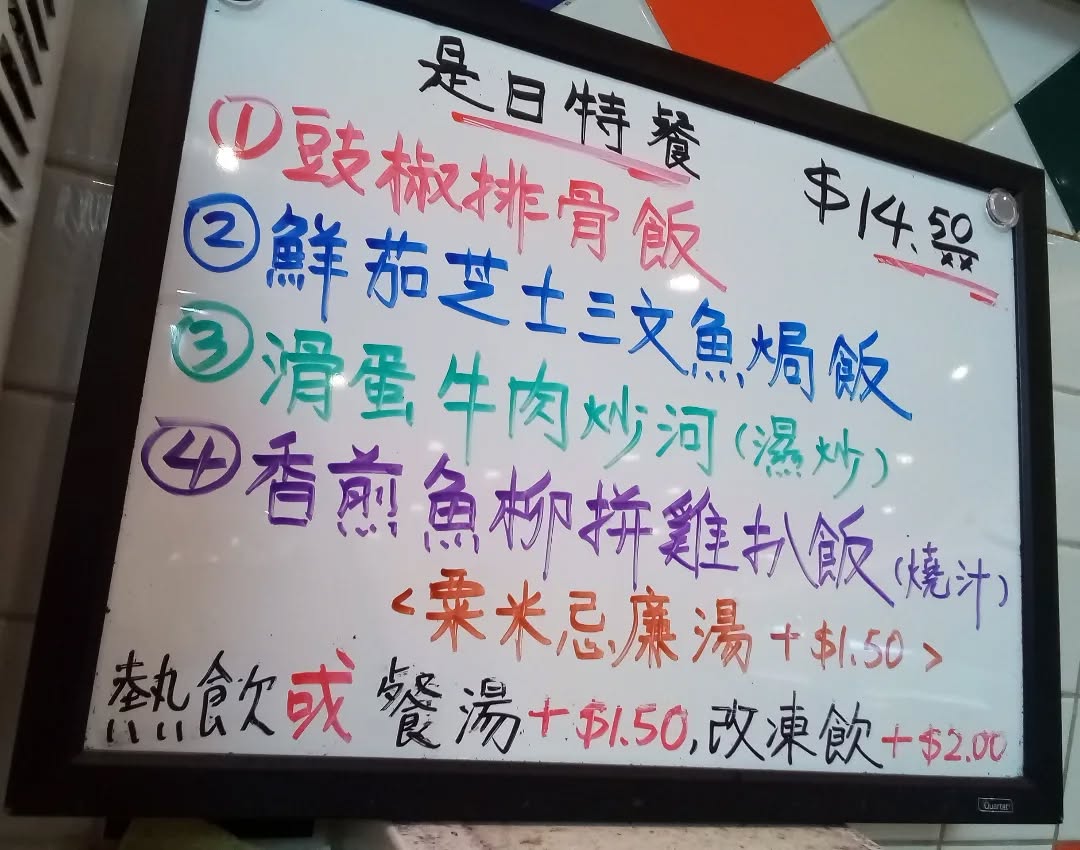 是日特餐
$14.50
xx
①豉椒排骨飯
②鮮茄芝士三文魚焗飯
③滑蛋牛肉炒河(濕炒)
④香煎魚柳拼雞扒飯(燒汁)
<粟米忌廉湯+$1.50>
熱飲或餐湯+$1.50,改凍飲+$2.00
Quartet